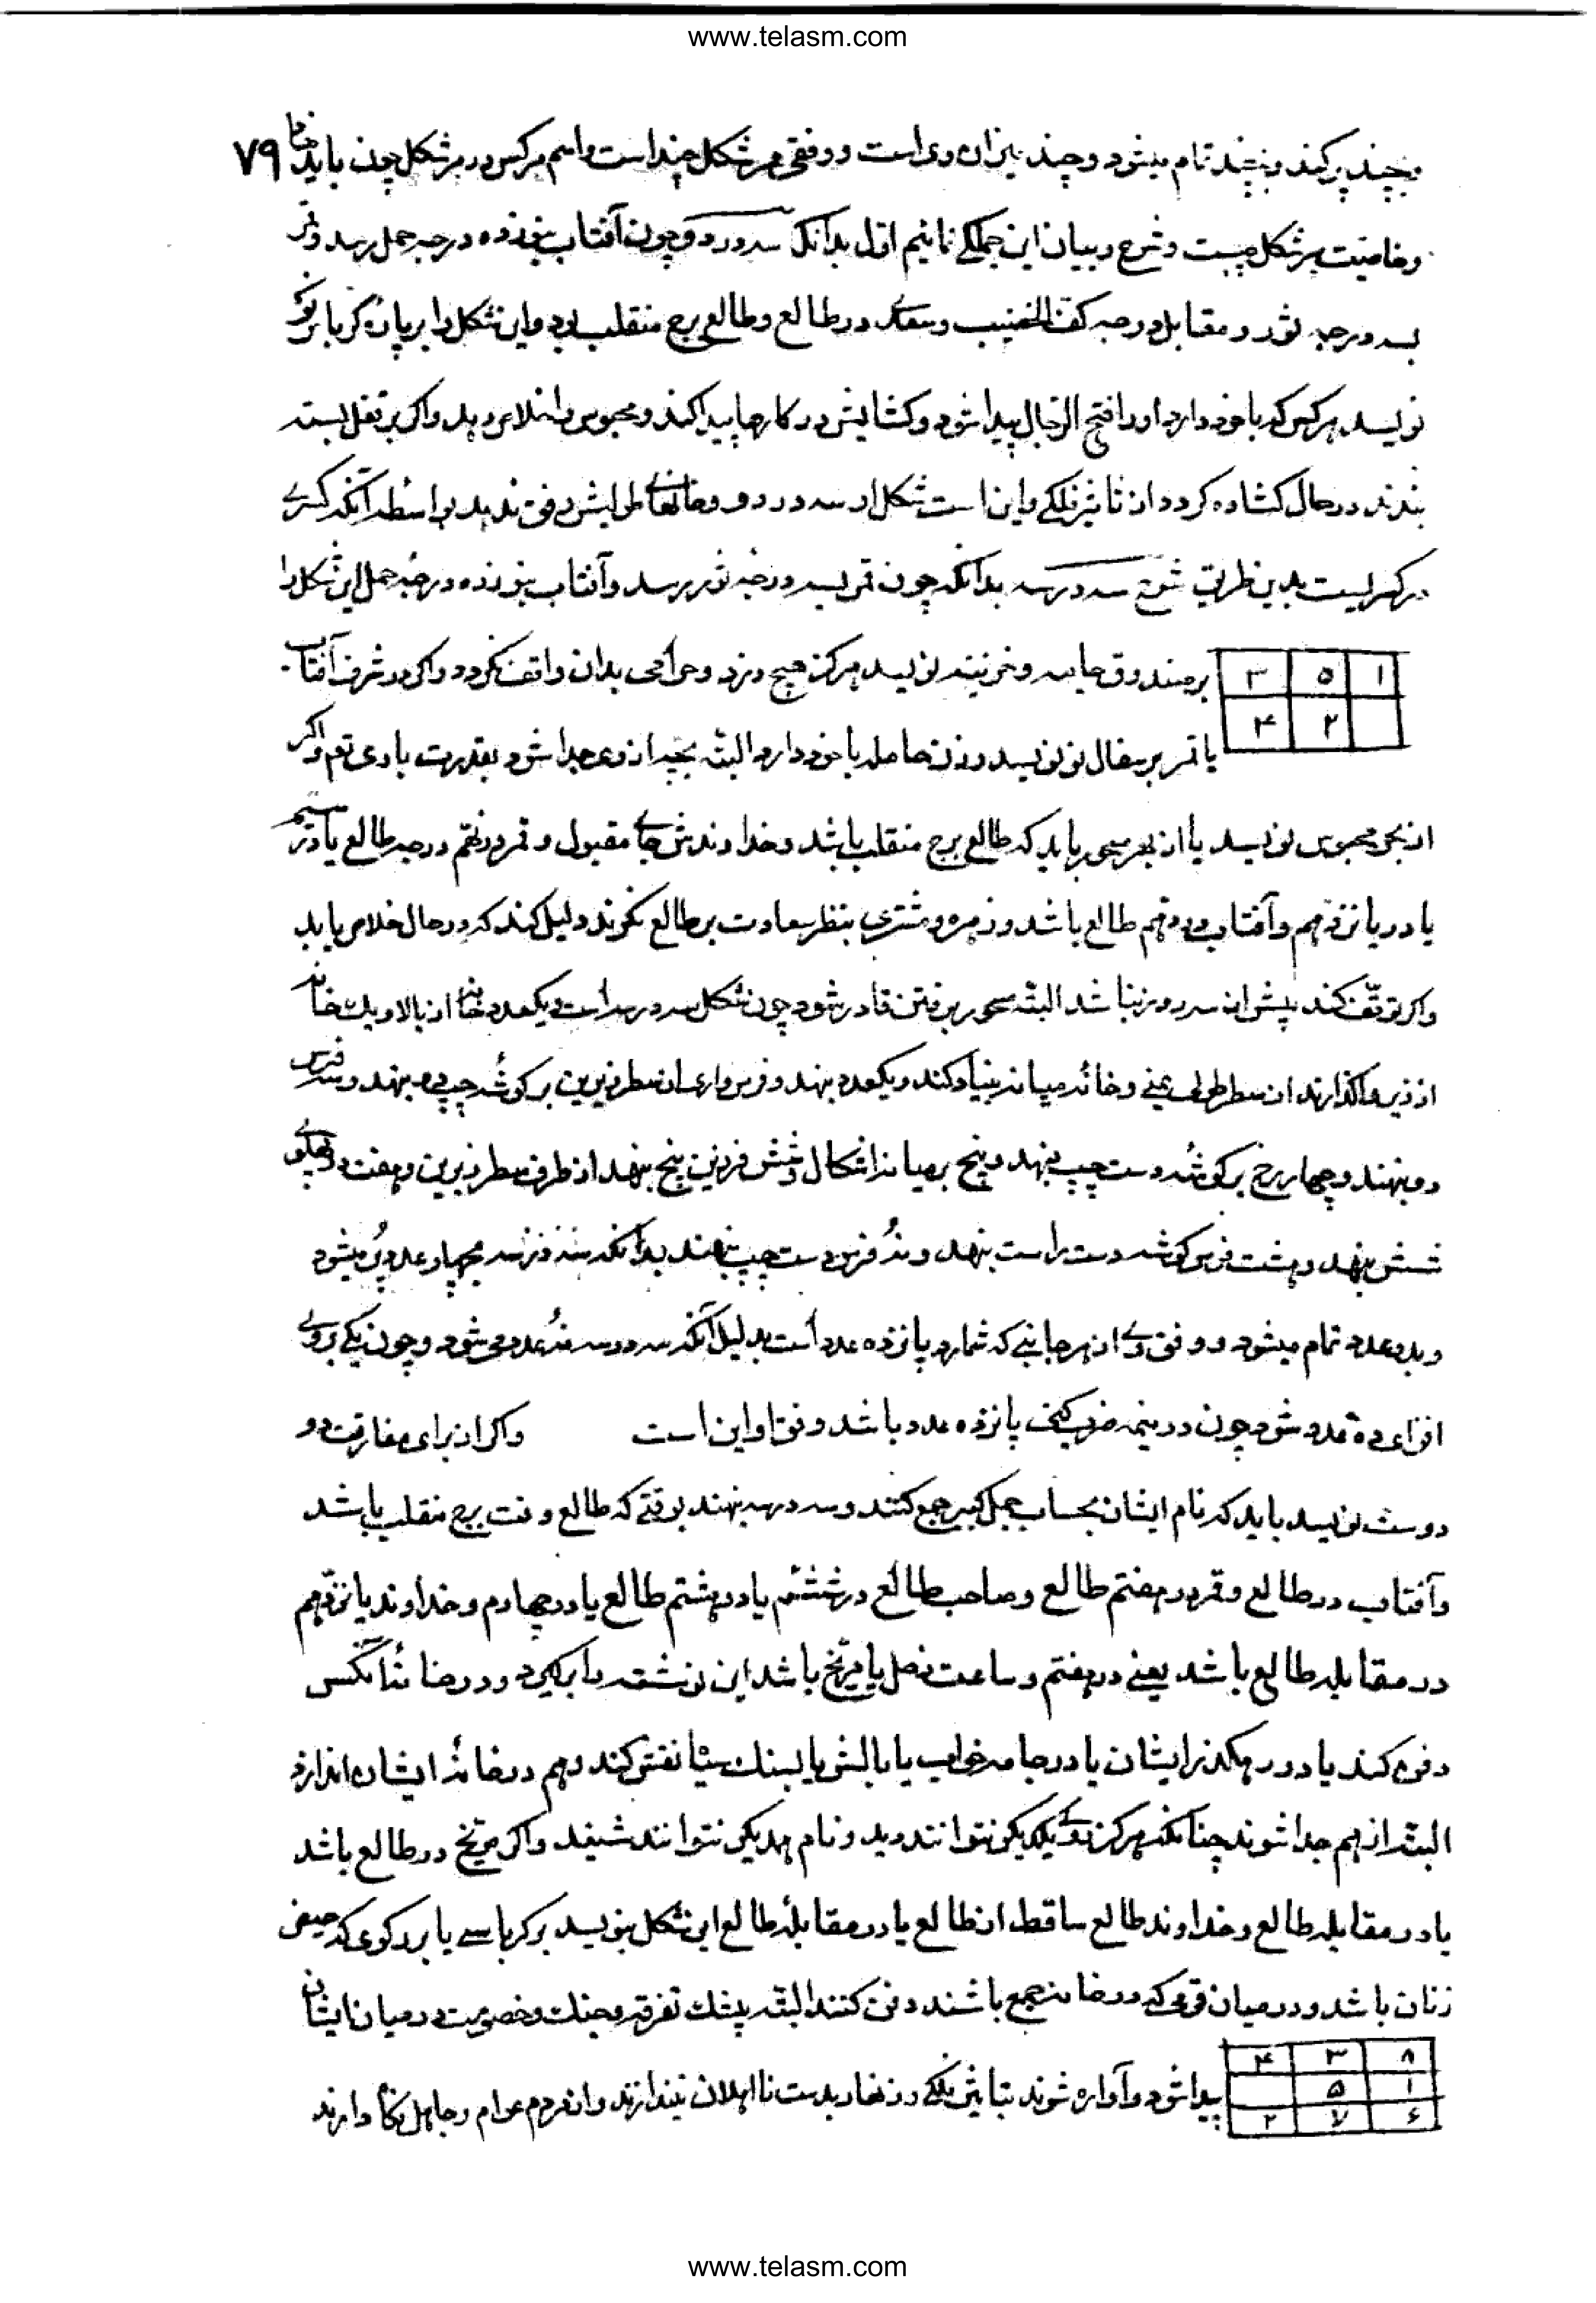 www.telasm.com
بچند پر کند و بچند تمام میشود و چند میزان وی است و وفق هر شکل چند است و اسم هر کس در هر شکل چون باید نهاد ۷۹
و خاصیت هر شکل چیست و شرح و بیان این جملگی نمائیم اول بدانک سه در دو چون آفتاب بنوزده درجه حمل رسد و قمر
بسه درجه ثور و مقابل درجه کف الخضیب و سعدی در طالع و طالع برج منقلب بود و این شکل را بر پاره کرباس نو
نویسد هر کس که با خود دارد او را فتح الرجال پیدا شود و گشایش در کارها پیدا کند و محبوس را خلاص دهد و اگر بر قفل بسته
بندند در حال گشاده گردد از تاثیر فلکی و این است شکل او سه در دو و
بدین طریق سه در سه بدانکه چون قمر بسه درجه ثور رسد و آفتاب بنوزده درجه حمل این شکل را
بر صندوق جامه و خزینه نویسد هرگز هیچ دزد و حرامی بدان واقف نگردد و اگر در شرف آفتاب
۱ ۵ ۳
۲ ۴
یا قمر بر سفال نو نویسد و زن حامله با خود دارد البته بچه از وی جدا شود بقدرت باری تعم و اگر
از بهر محبوس نویسد یا از بهر سحر باید که طالع برج منقلب باشد و خداوندش جای مقبول و قمر در نهم درجه طالع یا در سیم
یا در یازدهم و آفتاب در دهم طالع باشد و زهره و مشتری بنظر سعادت بر طالع نگرند دلیل کند که در حال خلاص یابد
و اگر توقف کند پیش از سه روز نباشد البته بر رفتن قادر شود چون شکل سه در سه است و یکعدد از بالا و یک خانه
از زیر واگذارند از سطر طولی یمنی و خانه میانه بنیاد کند و یکعدد بنهد و فرس واری از سطر زیرین بر گوشه چپ دو بنهد و سه فرس
دو بنهند و چهار رخ بر گوشه دست چپ بنهد و پنج بر میانه اشکال و شش فرزین پنج بنهد از طرف سطر زیرین و هفت در پهلوی
شش بنهد و هشت فرس گوشه دست راست بنهد و نه فرس دست چپ بنهند بدانکه سه در سه بچهار عدد پر میشود
و بدو عدد تمام میشود و وفق وی از هر جانبی که شمارد پانزده عدد است بدلیل آنکه سه در سه نه عدد می شود و چون یکی بر وی
افزای ده عدد شود چون در نیمه ضرب کنی پانزده عدد باشد وفق او این است و اگر از برای مفارقت دو
دوست نویسد باید که نام ایشان بحساب جمل کبیر جمع کنند و سه در سه بنهند بوقتی که طالع وقت برج منقلب باشد
و آفتاب در طالع و قمر در هفتم طالع و صاحب طالع در ششم یا در هشتم طالع یا در چهارم و خداوند یازدهم
در مقابله طالع باشد یعنی در هفتم و ساعت زحل یا مریخ باشد این نوشته را برگیرد و در خانه آنکس
دفن کند یا در رهگذر ایشان یا در جامه خواب یا بالش یا بسنگ سیاه نقش کند و هم در خانه ایشان اندازد
البته از هم جدا شوند چنانکه هرگز روی یکدیگر نتوانند دید و نام همدیگر نتوانند شنید و اگر مریخ در طالع باشد
یا در مقابله طالع و خداوند طالع ساقط از طالع یا در مقابله طالع این شکل بنویسد بر کرباسی یا بر رکوی که حیض
زنان باشد و در میان قومی که در خانه جمع باشند دفن کنند البته بیشک تفرقه و جنگ و خصومت در میان ایشان
پیدا شود و آواره شوند بتاثیر فلکی زنهار بدست نااهلان نیندازند و از مردم عوام و جاهل نگاه دارند
۸ ۳ ۴
۱ ۵
۶ ۷ ۲
www.telasm.com